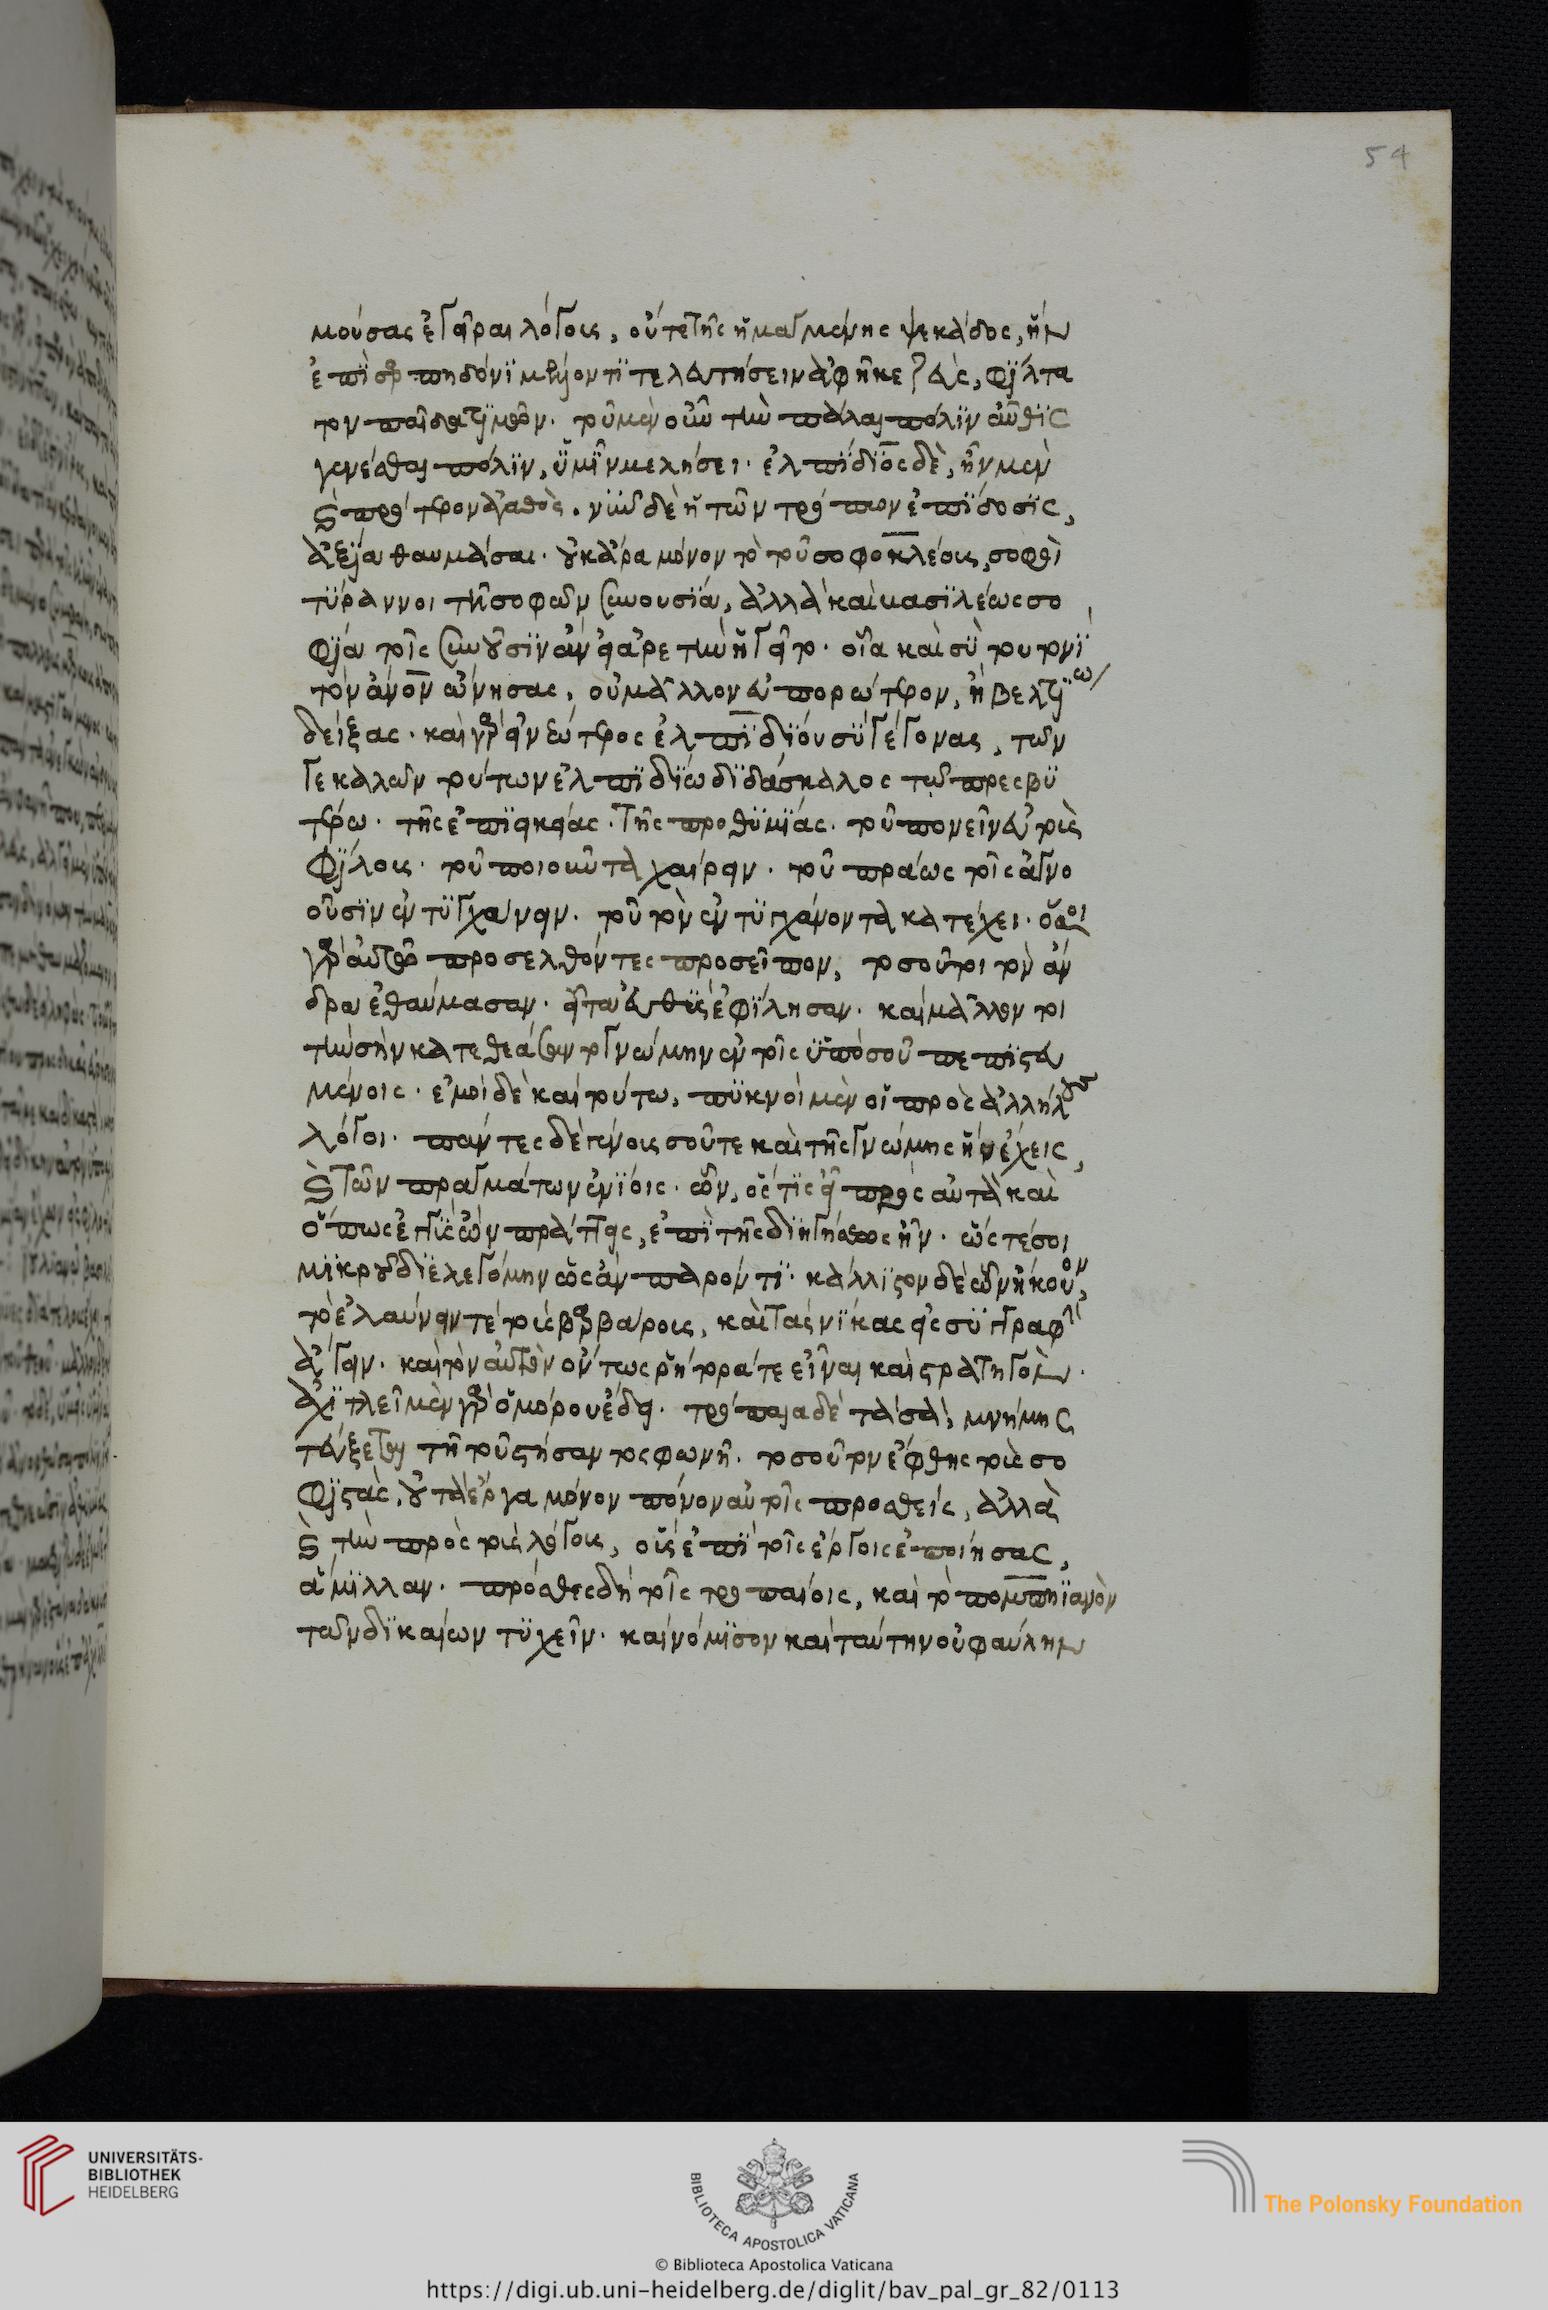 54
μούσας ἐγεῖραι λόγοις, οὔτε τῆς ἡμαγμένης ψεκάδος, ἣν
ἐπὶ σαρπηδόνι μέλλοντι τελευτήσειν ἀφῆκε ζεὺς, φίλτα
τον παῖδα τιμῶν. τοῦ μὲν οὖν τὴν πάλαι πόλιν αὖθις
γενέσθαι πόλιν, ὑμῖν μελήσει. ἐλπίδιος δὲ, ἦν μὲν
καὶ πρότερον ἀγαθὸς. νῦν δὲ ἡ τῶν τρόπων ἐπίδοσις,
ἀξία θαυμάσαι. οὐκ ἄρα μόνον τὸ τοῦ σοφοκλέους, σοφοὶ
τύραννοι τῇ σοφῶν συνουσία, ἀλλὰ καὶ βασιλέως σο
φία τοῖς συνοῦσιν ἂν εἰς ἀρετὴν ἡγεῖτο. οἷα καὶ σὺ τουτονὶ
τὸν ἄνον ὤνησας, οὐ μᾶλλον εὐπορώτερον, ἢ βελτίω
δείξας. καὶ γὰρ εἰ νεώτερος ἐλπιδίου σὺ γέγονας, τῶν
γε καλῶν τούτων ἐλπιδίω διδάσκαλος τῷ πρεσβυ
τέρω. τῆς ἐπιεικείας. τῆς προθυμίας. τοῦ πονεῖν εὖ τοὺς
φίλους. τοῦ ποιοῦντα χαίρειν. τοῦ πράως τοῖς ἀγνο
οῦσιν ἐντυγχάνειν. τοῦ τὸν ἐντυγχάνοντα κατέχει. ὅσοι
γὰρ αὐτῷ προσελθόντες προσεῖπον, τοσοῦτοι τὸν ἄν
δρα ἐθαύμασαν. εἶτα εὐθὺς ἐφίλησαν. καὶ μᾶλλον τι
τὴν σὴν κατεθεάσαντο γνώμην ἐν τοῖς ὑπὸ σοῦ πεπιστευ
μένοις. ἐμοὶ δὲ καὶ τούτω, πυκνοὶ μὲν οἱ πρὸς ἀλλήλους
λόγοι. πάντες δὲ ἐπαίνοις σοῦ τε καὶ τῆς γνώμης ἣν ἔχεις,
καὶ τῶν πραγμάτων ἐνίοις. ὧν, ὅστις εἶ πρὸς αὐτὰ καὶ
ὅπως πράττεις, ἐπὶ τῆς διηγήσεως ἦν. ὥστέ σοι
μικροῦ διελεγόμην ὡς ἂν παρόντι. κάλλιστον δὲ ὧν ἤκουον,
τὸ ἐλαύνειν τε τοὺς βαρβάρους, καὶ τὰς νίκας εἰς συγγραφὴν
ἄγειν. καὶ τὸν αὐτὸν ὄντως ῥήτορά τε εἶναι καὶ στρατηγὸν.
ἀχιλλεῖ μὲν γὰρ ὁμήρου ἔδει. τρόπαια δὲ τὰ σὰ, μνήμης
τεύξεται τῇ τοῦ στήσαντος φωνῇ. τοσοῦτον ἔφθης τοὺς σο
φιστὰς, οὐ τὰ ἔργα μόνον πόνον αὐτοῖς προσθεὶς, ἀλλὰ
καὶ τὴν πρὸς τοὺς λόγους, οὓς ἐπὶ τοῖς ἔργοις ἐποίησας,
ἅμιλλαν. πρόσθες δὴ τοῖς τροπαίοις, καὶ τὸ πομπηϊανὸν
τῶν δικαίων τυχεῖν. καὶ νόμισον καὶ ταύτην οὐ φαύλην
UNIVERSITÄTS-
BIBLIOTHEK
HEIDELBERG
BIBLIOTECA APOSTOLICA VATICANA
The Polonsky Foundation
© Biblioteca Apostolica Vaticana
https://digi.ub.uni-heidelberg.de/diglit/bav_pal_gr_82/0113